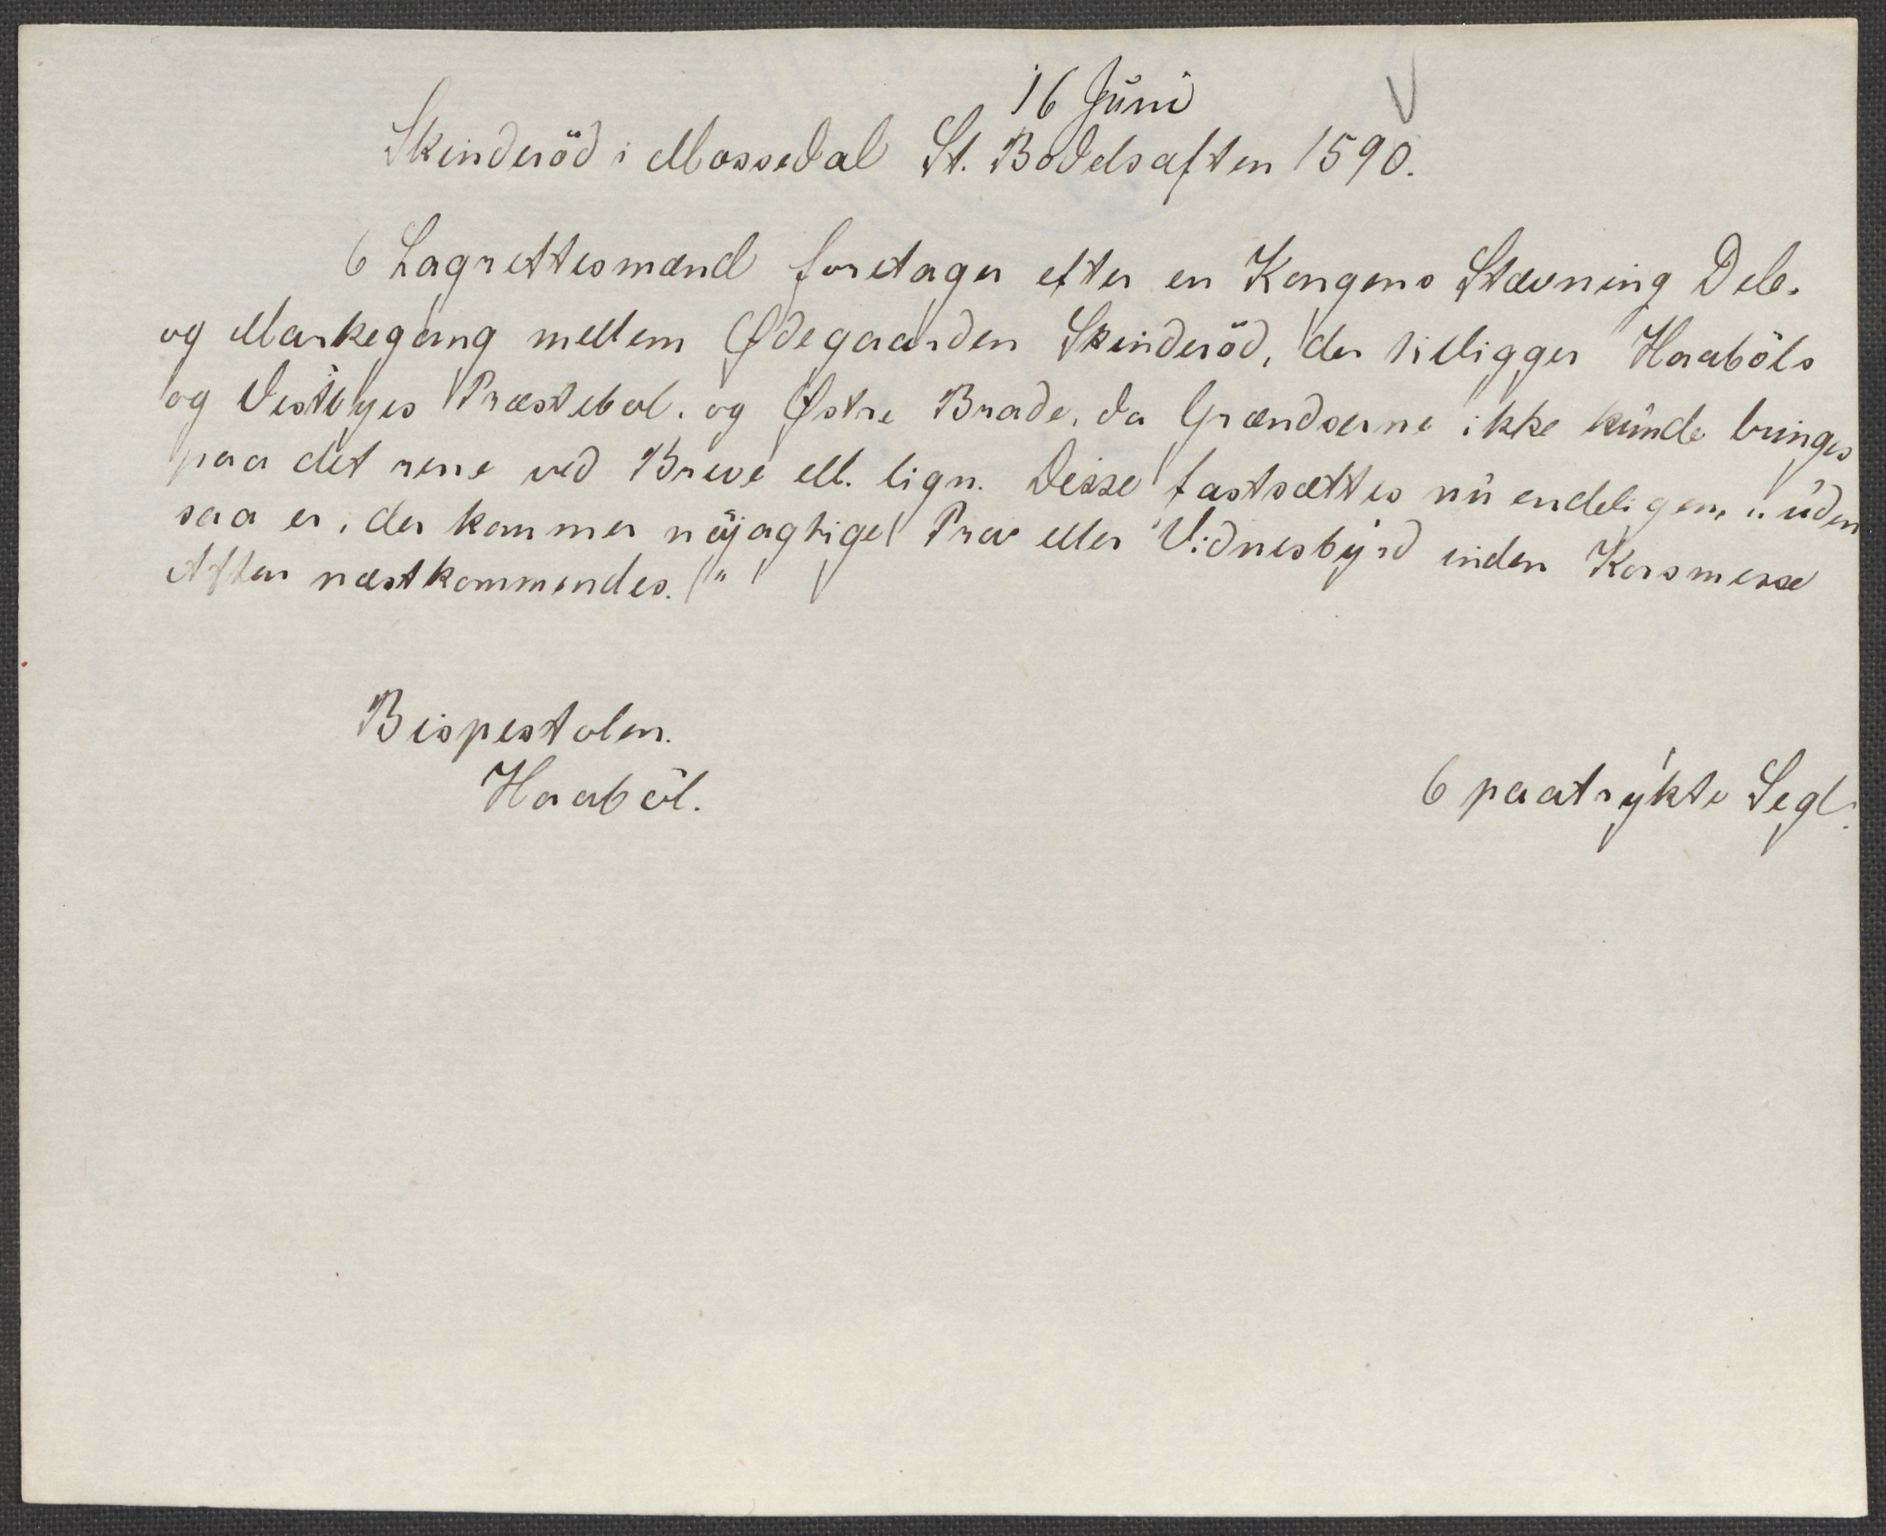 16 Juni
Skinderöd i Mossedal St. Bodelsaften 1590.
6 Lagrettesmænd foretager efter en Kongens Stævning Dele-
og Markegang mellem Ødegaarden Skinderöd, der tilligger Haaböls
og Vestbyes Præstebol. og Østre Brade, da Grændserne ikke kunde bringes
paa det rene ved Breve ell. lign. Disse fastsættes nu endeligen, "uden
saa er, der kommer nöjagtiger Prov eller Vidnesbyrd inden Korsmesse
Aften næstkommendes."
Bispestolen.
Haaböl.
6 paatrykte Segl.